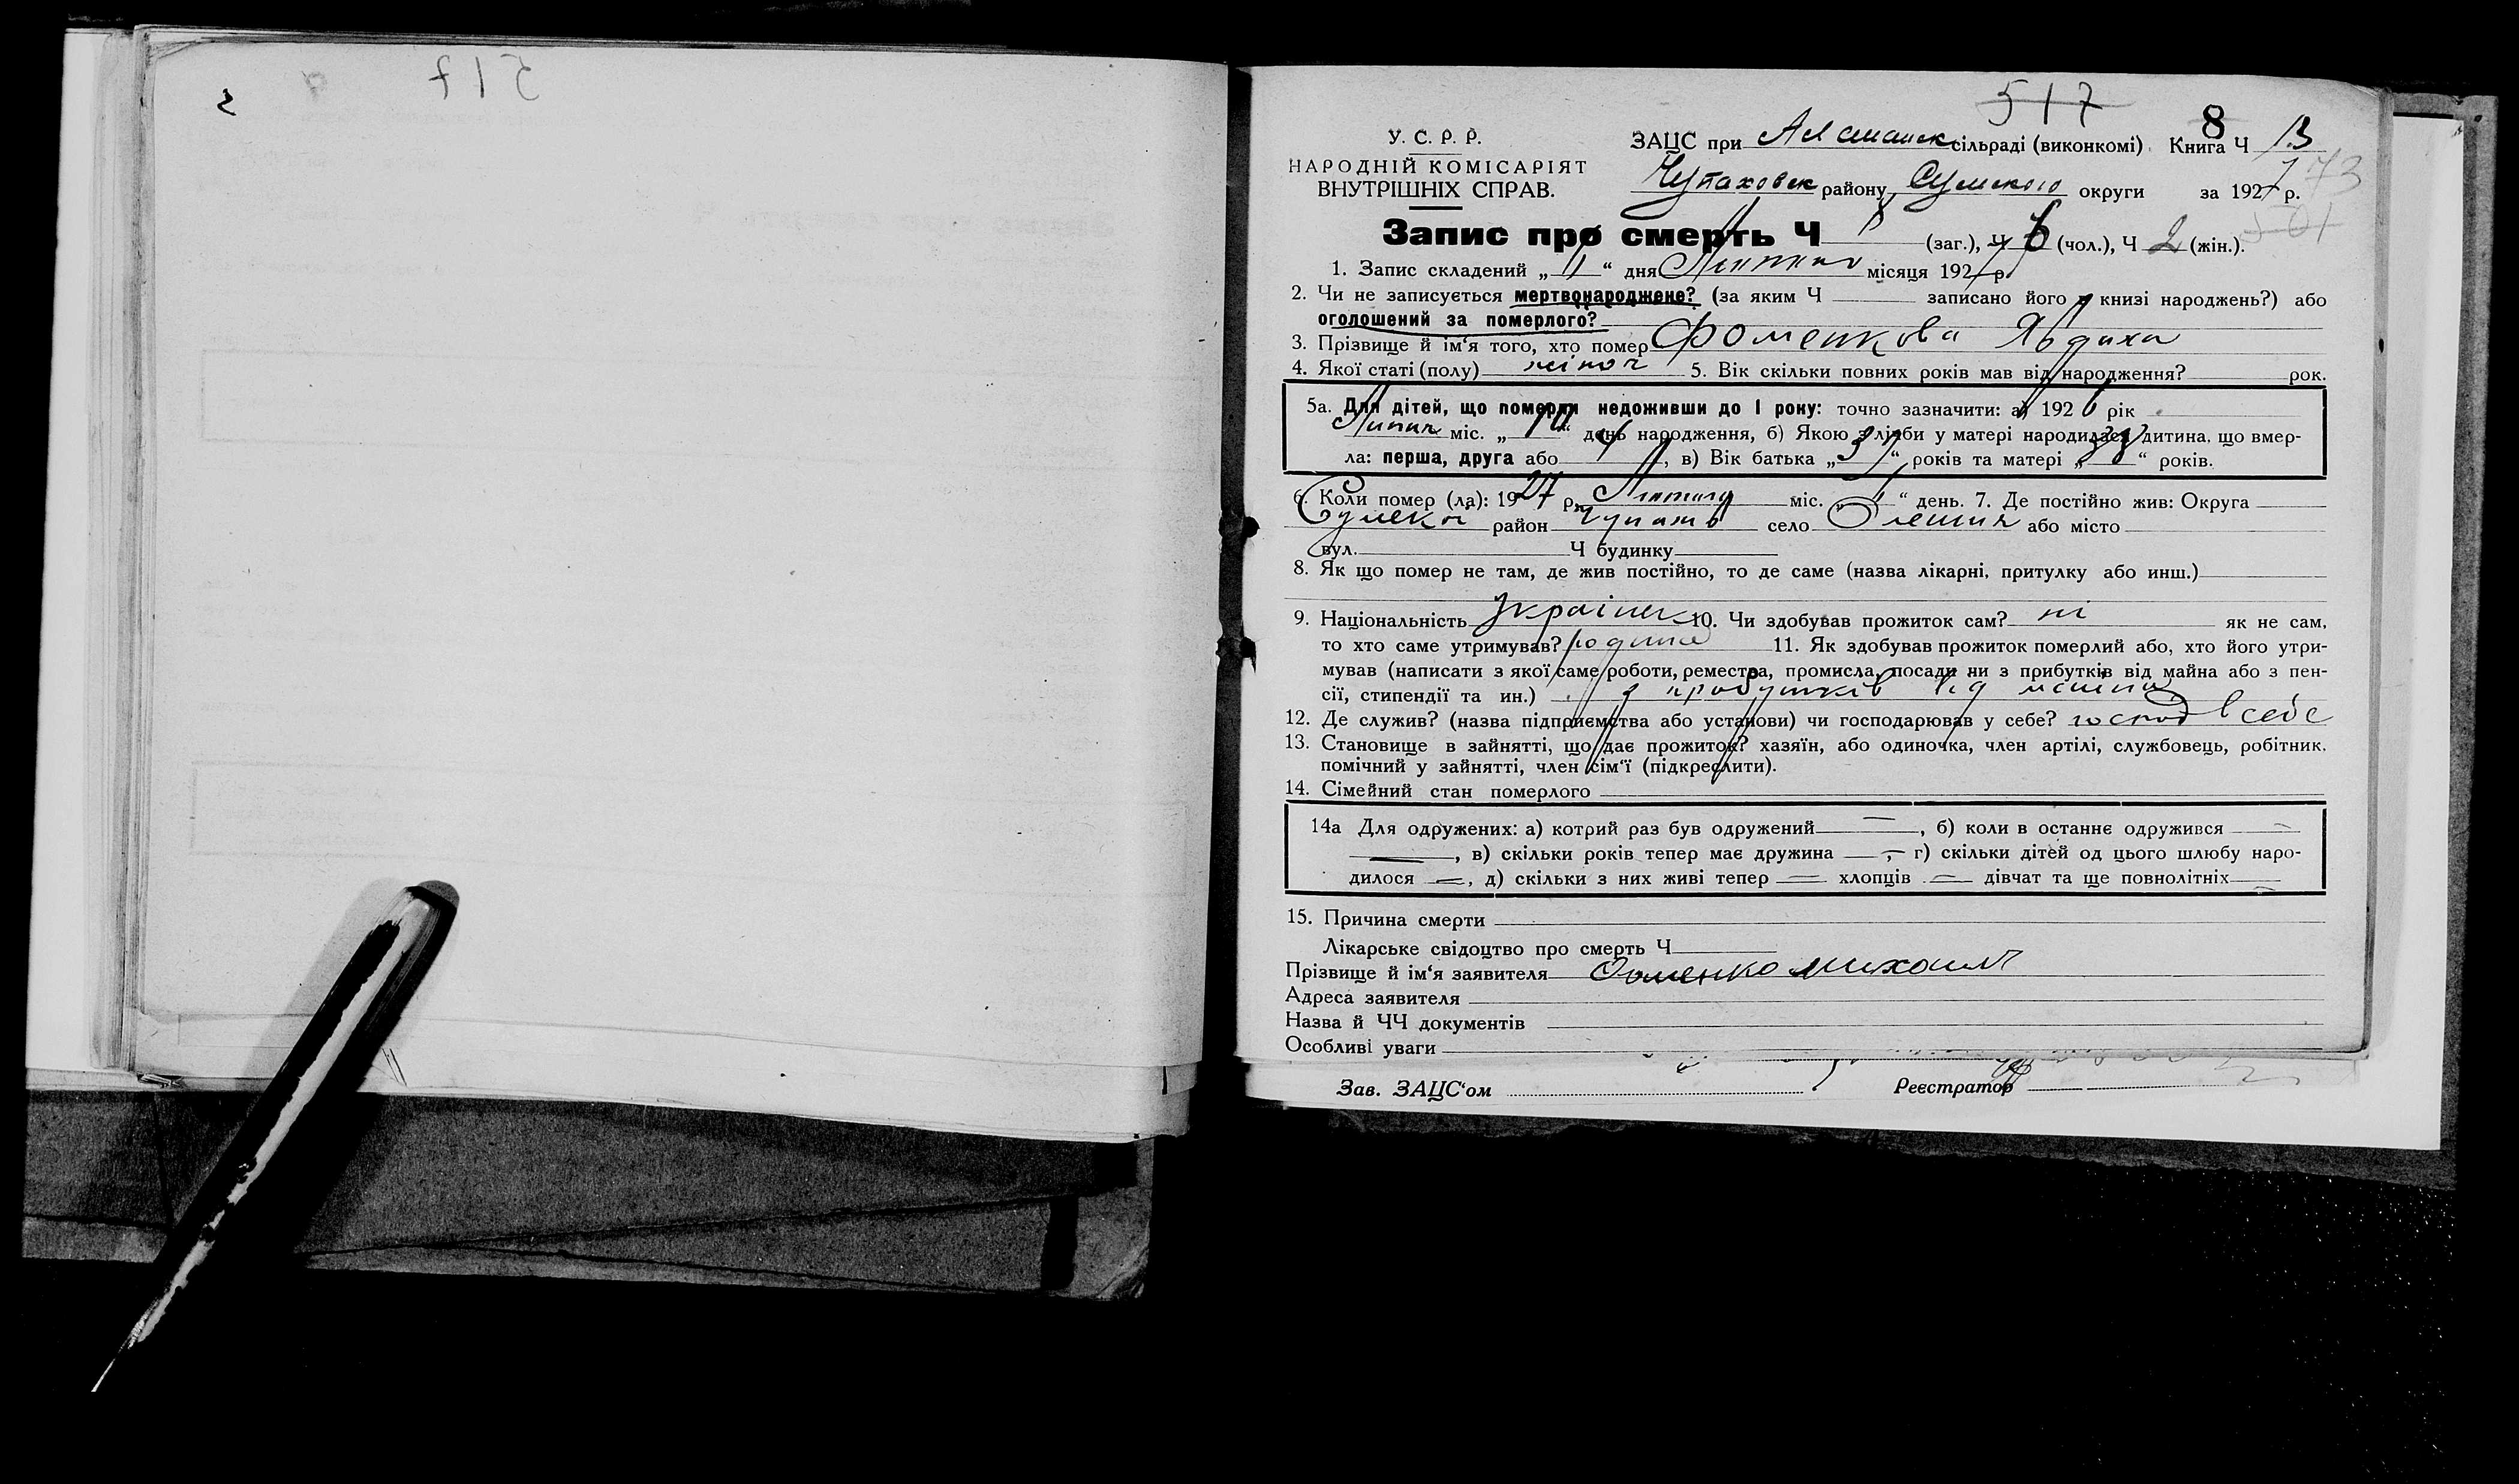 517
517
8
У. С. Р. Р.
НАРОДНІЙ КОМІСАРІЯТ
ВНУТРІШНІХ СПРАВ.
ЗАЦС при сільраді (виконкомі) Книга Ч 13
Чупаховск району, Сумского округи за 1927 р.
73
501
Запис про смерть Ч 8 (заг.), Ч 6 (чол.), Ч 2 (жін.).
1. Запис складений „ 11 “ дня Лютого місяця 1927 р.
2. Чи не записується мертвонароджене? (за яким Ч записано його в книзі народжень?) або
оголошений за померлого?
3. Прізвище й ім'я того, хто помер Фоменкова Явдаха
4. Якої статі (полу) жіноч 5. Вік скільки повних років мав від народження? рок.
5а. Для дітей, що померли недоживши до 1 року: точно зазначити: а) 1926 рік
Липня міс. „ 10 “ день народження, б) Якою з лічби у матері народилася дитина, що вмер-
ла: перша, друга або 4, в) Вік батька „ 37 “ років та матері „ 38 “ років.
6. Коли помер (ла): 1927 р. Лютого міс. „ “ день. 7. Де постійно жив: Округа
Сумска район Чупахов село Олешня або місто
вул. Ч будинку
8. Як що помер не там, де жив постійно, то де саме (назва лікарні, притулку або инш.)
9. Національність українк 10. Чи здобував прожиток сам? ні як не сам,
то хто саме утримував? родина 11. Як здобував прожиток померлий або, хто його утри-
мував (написати з якої саме роботи, реместра, промисла, посади чи з прибутків від майна або з пен-
сії, стипендії та ин.) з прибутків від майна
12. Де служив? (назва підприємства або установи) чи господарював у себе? господ в себе
13. Становище в зайнятті, що дає прожиток? хазяїн, або одиночка, член артілі, службовець, робітник,
помічний у зайнятті, член сім'ї (підкреслити).
14. Сімейний стан померлого
14а Для одружених: а) котрий раз був одружений —, б) коли в останнє одружився —
—, в) скільки років тепер має дружина —, г) скільки дітей од цього шлюбу наро-
дилося —, д) скільки з них живі тепер — хлопців — дівчат та ще повнолітніх —
15. Причина смерти
Лікарське свідоцтво про смерть Ч
Прізвище й ім'я заявителя Фоменко Михаил
Адреса заявителя
Назва й ЧЧ документів
Особливі уваги
Зав. ЗАЦС'ом Реєстратор